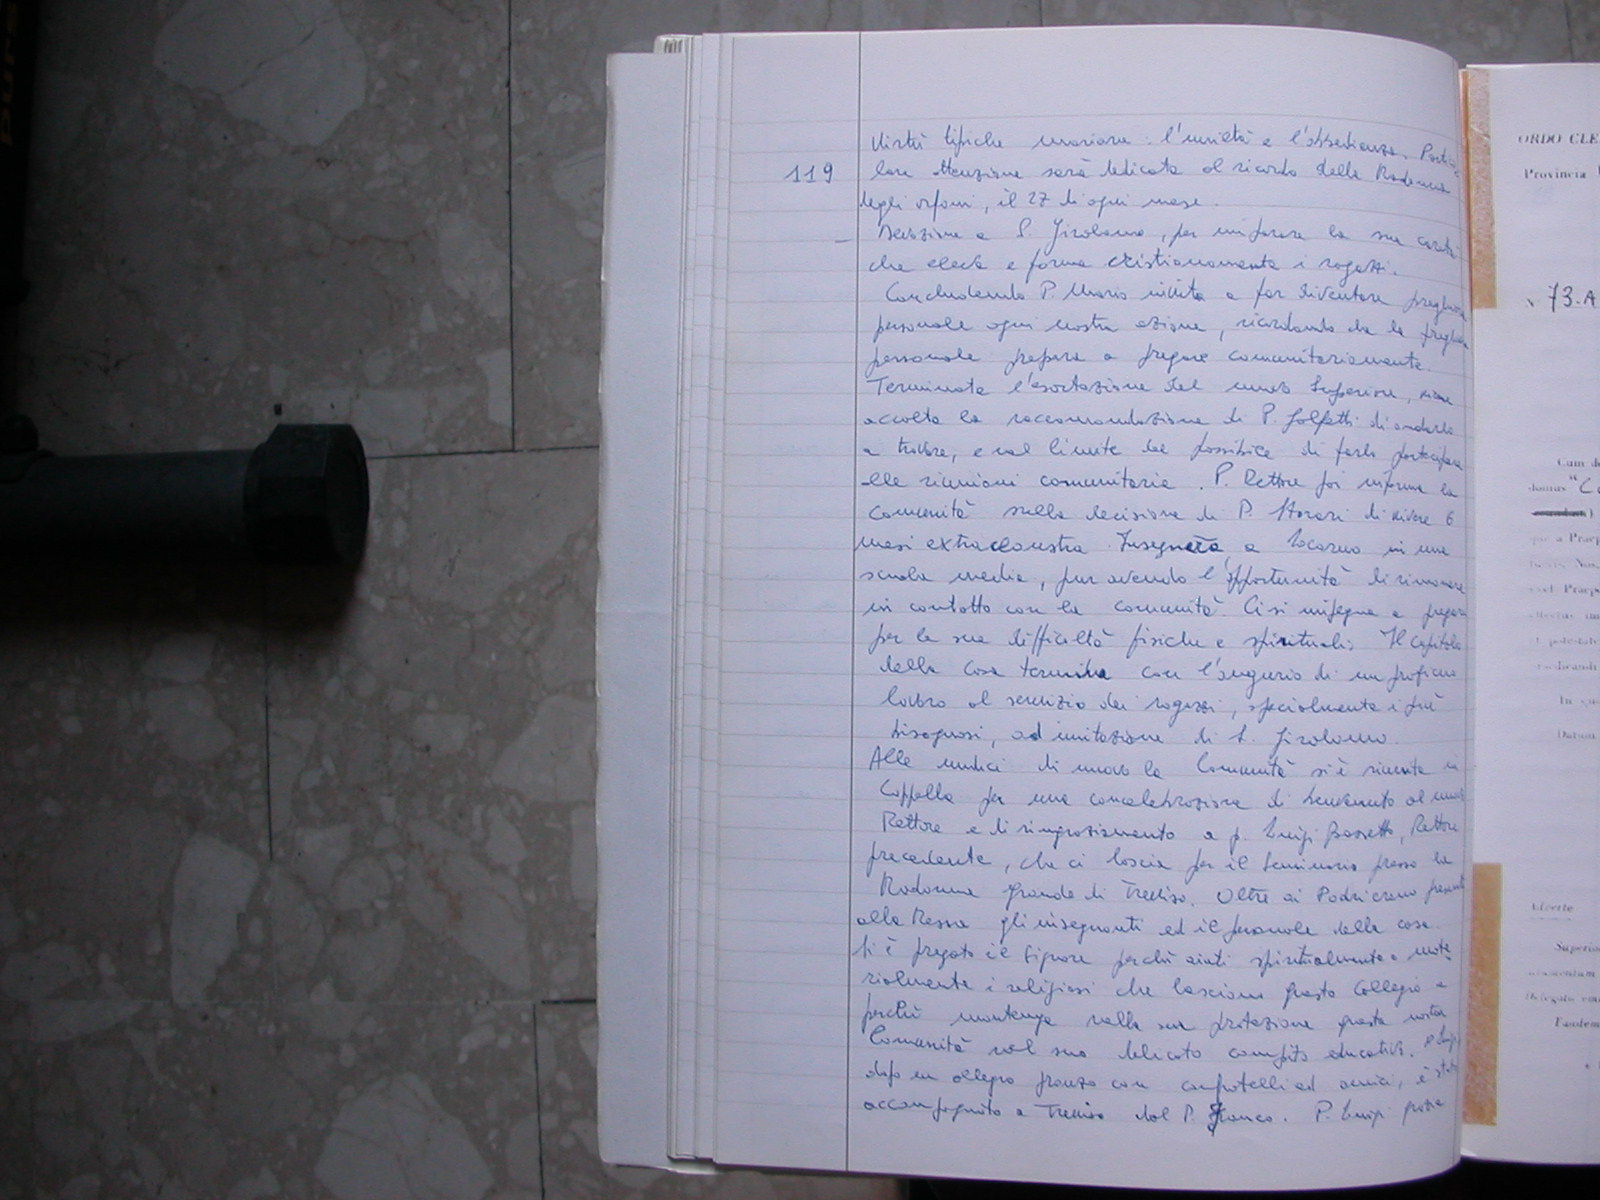 Virtù tipiche mariane: l'umiltà e l'obbedienza. Partico-
119
lare attenzione sarà dedicata al ricordo della Madonna
degli orfani, il 27 di ogni mese.
- Devozione a S. Girolamo, per imparare la sua carità
che eleva e forma cristianamente i ragazzi.
Concludendo P. Mario invita a far diventare preghiera
personale ogni nostra azione, ricordando che la preghiera
personale prepara a pregare comunitariamente.
Terminata l'esortazione del nuovo Superiore, viene
accolta la raccomandazione di P. di andarlo
a trovare, e nel limite del possibile di farlo partecipare
alle riunioni comunitarie. P. Rettore poi informa la
comunità sulla decisione di P. di vivere 6
mesi extraclaustra. Insegnerà a Locarno in una
scuola media, pur avendo l'opportunità di rimanere
in contatto con la comunità. Ci si impegna a pregare
per le sue difficoltà fisiche e spirituali. Il Capitolo
della Casa termina con l'augurio di un proficuo
lavoro al servizio dei ragazzi, specialmente i più
bisognosi, ad imitazione di S. Girolamo.
Alle undici di nuovo la Comunità si è riunita in
Cappella per una concelebrazione di benvenuto al nuovo
Rettore e di ringraziamento a p. Luigi Bassetto, Rettore
precedente, che ci lascia per il Seminario presso la
Madonna grande di Treviso. Oltre ai Padri erano presenti
alla Messa gli insegnanti ed il personale della casa.
Si è pregato il Signore perchè aiuti spiritualmente e mate-
rialmente i religiosi che lasciano questo Collegio e
perchè mantenga nella sua protezione questa nostra
Comunità nel suo delicato compito educativo. P. Luigi,
dopo un allegro pranzo con confratelli ed amici, è stato
accompagnato a Treviso dal P. Franco. P. Luigi
ORDO CLE
Provincia
73-A
Cum